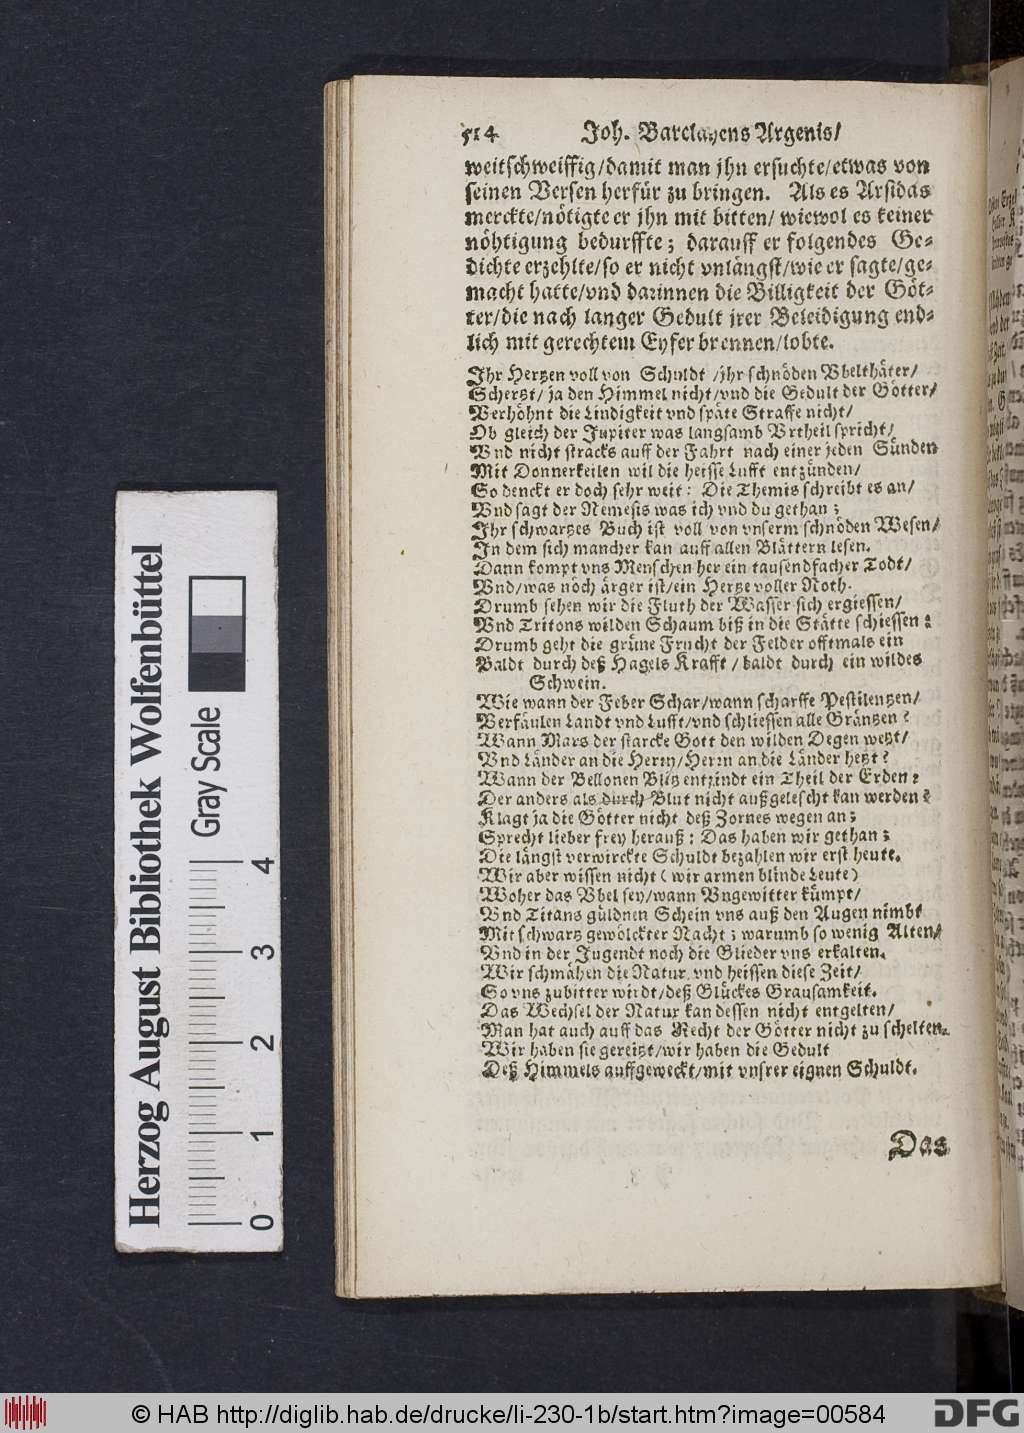 514 Joh. Barclayens Argenis/
weitschweiffig/damit man jhn ersuchte/etwas von
seinen Versen herfür zu bringen. Als es Arsidas
merckte/nötigte er jhn mit bitten/ wiewol es keiner
nöhtigung bedurffte; darauff er folgendes Ge-
dichte erzehlte/so er nicht vnlängst/wie er sagte/ge-
macht hatte/vnd darinnen die Billigkeit der Göt-
ter/die nach langer Gedult jrer Beleidigung end-
lich mit gerechtem Eyfer brennen/lobte.
Ihr Hertzen voll von Schuldt /jhr schnöden Vbelthäter/
Schertzt/ ja den Himmel nicht/vnd die Gedult der Götter/
Verhöhnt die Lindigkeit vnd späte Straffe nicht/
Ob gleich der Jupiter was langsamb Vrtheil spricht/
Vnd nicht stracks auff der Fahrt nach einer jeden Sünden
Mit Donnerkeilen wil die heisse Lufft entzünden/
So denckt er doch sehr weit: Die Themis schreibt es an/
Vnd sagt der Nemesis was ich vnd du gethan;
Ihr schwartzes Buch ist voll von vnserm schnöden Wesen/
In dem sich mancher kan auff allen Blättern lesen.
Dann kompt vns Menschen her ein tausendfacher Todt/
Vnd/was noch ärger ist/ein Hertze voller Noth.
Drumb sehen wir die Fluth der Wasser sich ergiessen/
Vnd Tritons wilden Schaum biß in die Stätte schiessen:
Drumb geht die grüne Frucht der Felder offtmals ein
Baldt durch deß Hagels Krafft / baldt durch ein wildes
Schwein.
Wie wann der Feber Schar/wann scharffe Pestilentzen/
Verfäulen Landt vnd Lufft/vnd schliessen alle Gräntzen?
Wann Mars der starcke Gott den wilden Degen wetzt/
Vnd Länder an die Herrn/Herrn an die Länder hetzt?
Wann der Bellonen Blitz entzindt ein Theil der Erden?
Der anders als durch Blut nicht außgelescht kan werden?
Klagt ja die Götter nicht deß Zornes wegen an;
Sprecht lieber frey herauß: Das haben wir gethan;
Die längst verwirckte Schuldt bezahlen wir erst heute.
Wir aber wissen nicht (wir armen blinde Leute)
Woher das Vbel sey/wann Vngewitter kümpt/
Vnd Titans güldnen Schein vns auß den Augen nimbt
Mit schwartz gewölckter Nacht; warumb so wenig Alten/
Vnd in der Jugendt noch die Glieder vns erkalten.
Wir schmähen die Natur, vnd heissen diese Zeit/
So vns zubitter wirdt/deß Glückes Grausamkeit.
Das Wechsel der Natur kan dessen nicht entgelten/
Man hat auch auff das Recht der Götter nicht zu schelten.
Wir haben sie gereitzt/wir haben die Gedult
Deß Himmels auffgeweckt/mit vnsrer eignen Schuldt.
Das
Herzog August Bibliothek Wolfenbüttel
Gray Scale
0 1 2 3 4
© HAB http://diglib.hab.de/drucke/li-230-1b/start.htm?image=00584
DFG